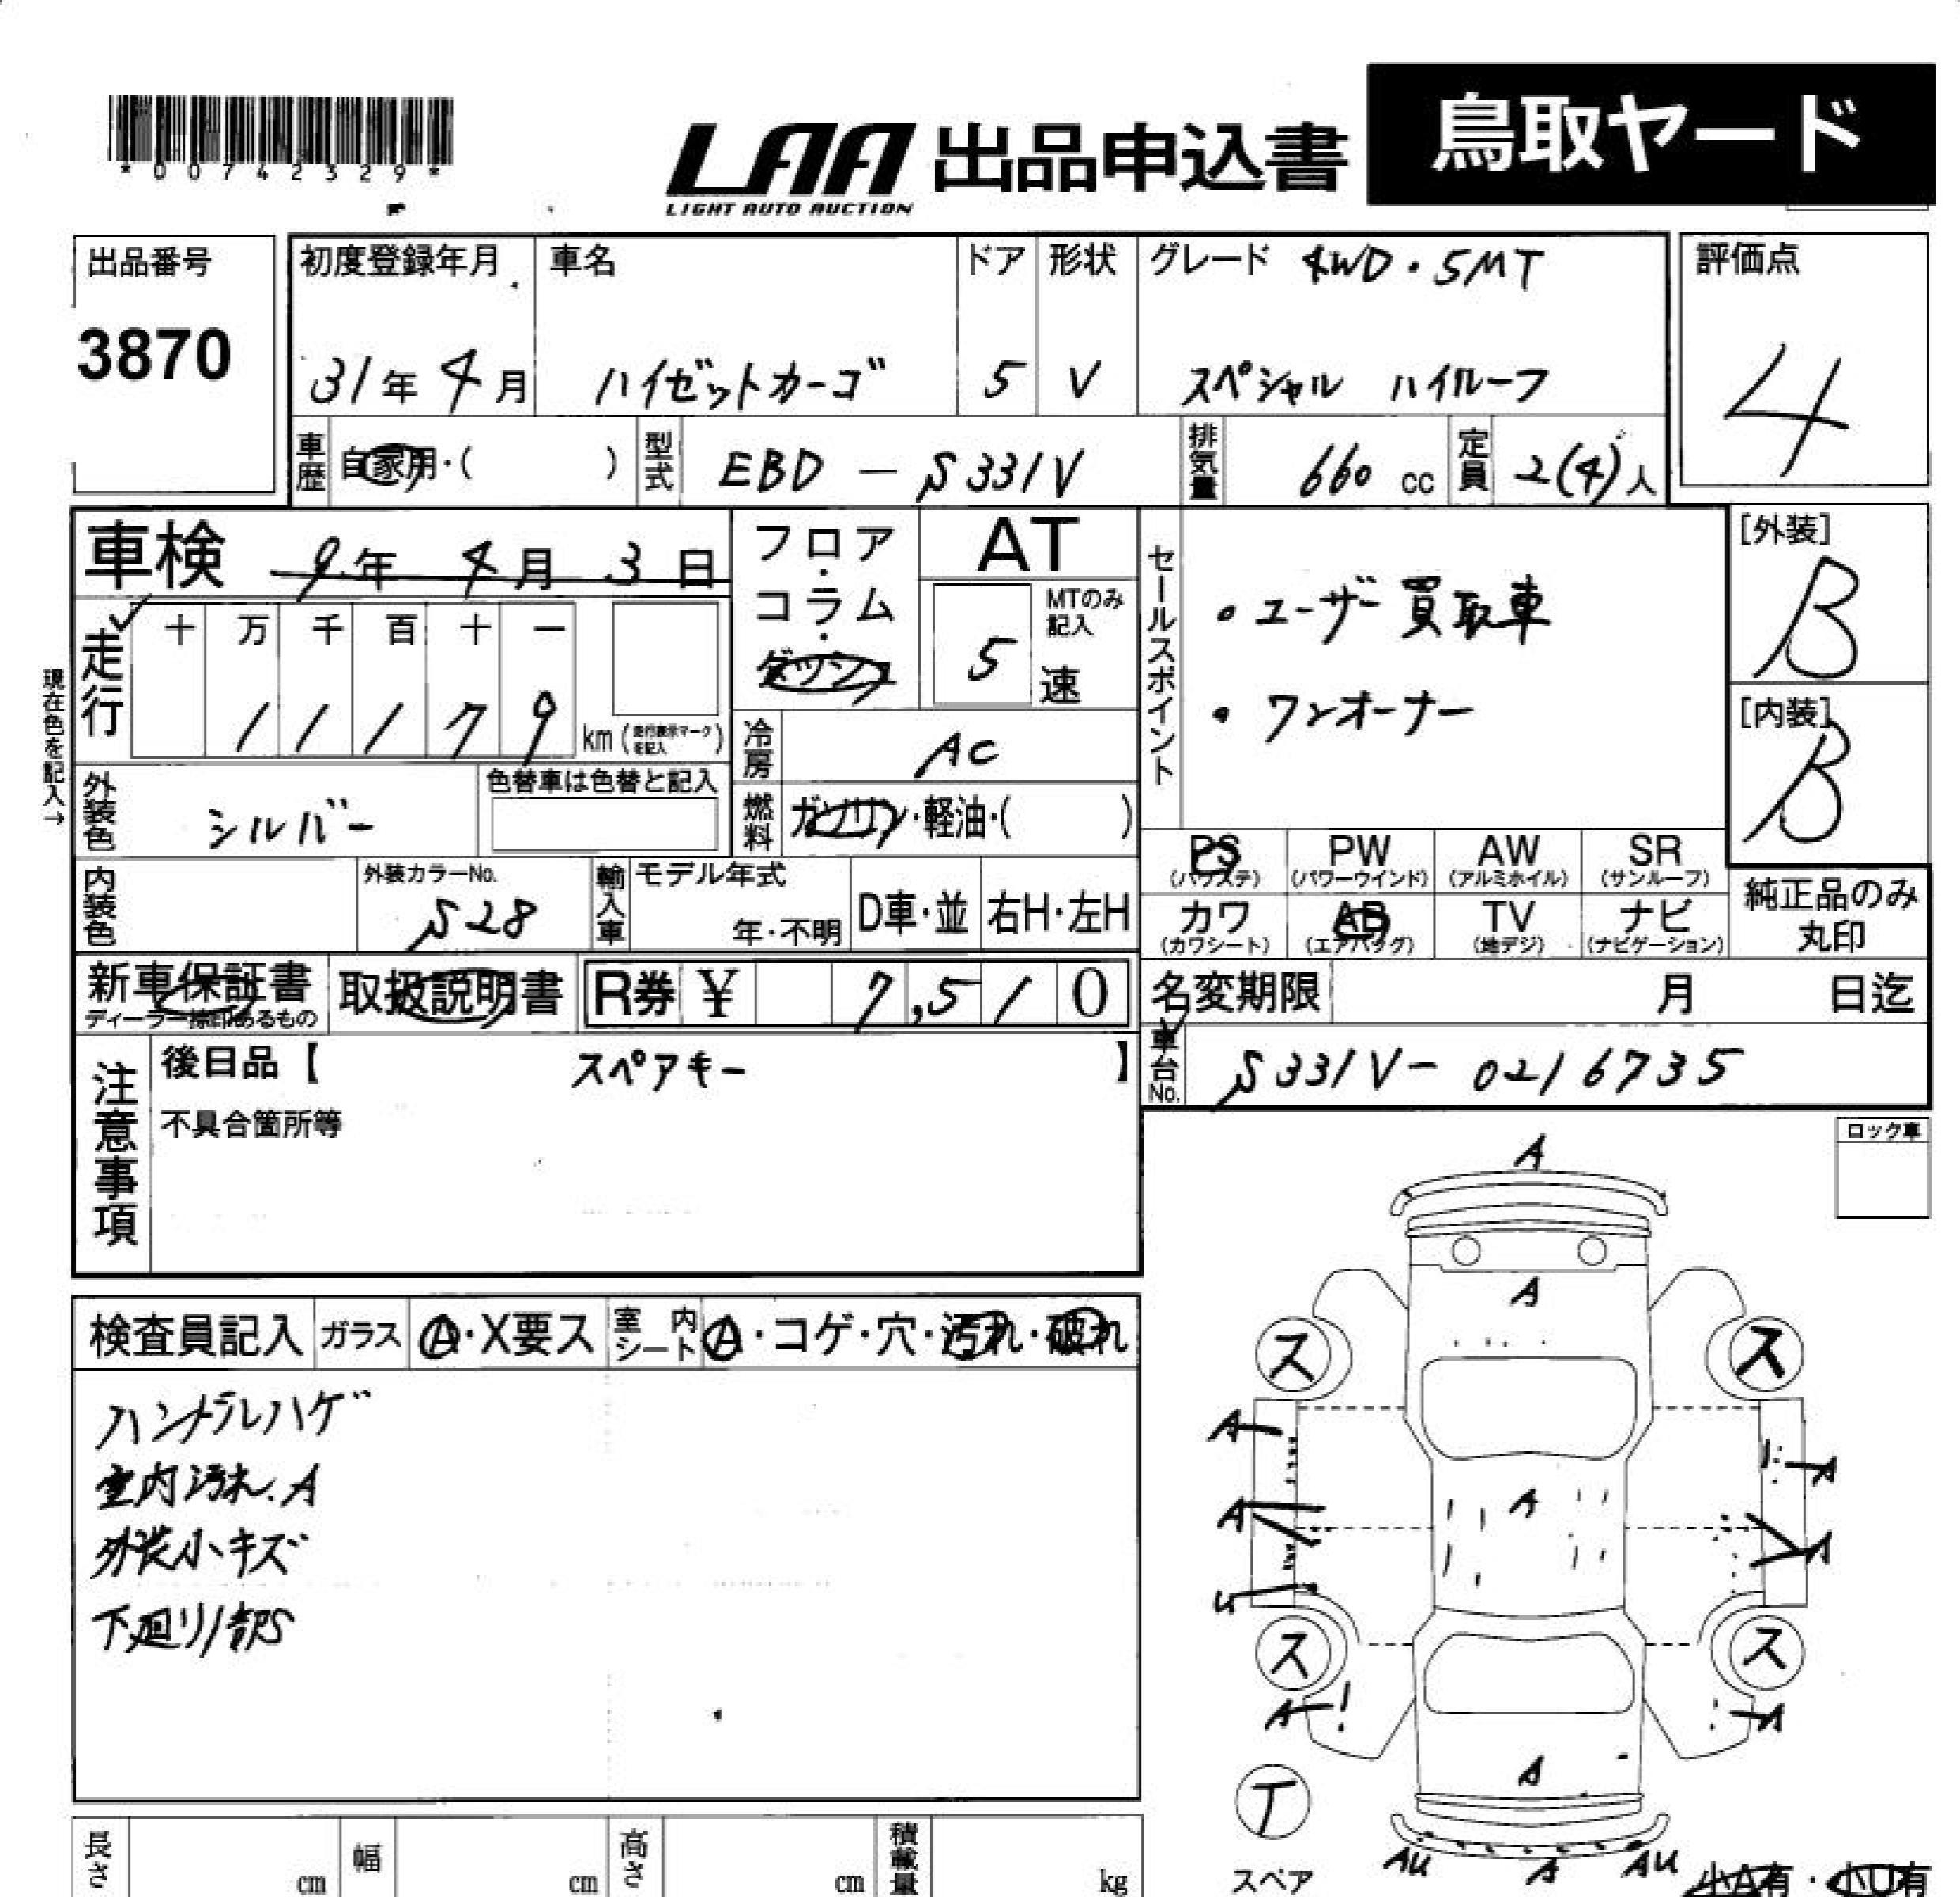 *00742329*
LAA 出品申込書 鳥取ヤード
LIGHT AUTO AUCTION
出品番号 3870
初度登録年月 31年4月
車名 ハイゼットカーゴ
ドア 5
形状 V
グレード 4WD・5MT
スペシャル ハイルーフ
評価点 4
車歴 自家用・( )
型式 EBD-S331V
排気量 660 cc
定員 2(4)人
車検 9年4月3日
フロア・コラム・ダッシュ
AT
MTのみ記入 5速
セールスポイント
・ユーザー買取車
・ワンオーナー
[外装] B
[内装] B
現在色を記入→
走行 十 万 千 百 十 一
1 1 1 7 9 km (走行表示マークを記入)
冷房 AC
燃料 ガソリン・軽油・( )
外装色 シルバー
色替車は色替と記入
内装色
外装カラーNo. S28
輸入車 モデル年式 年・不明 D車・並 右H・左H
PS (パワステ) PW (パワーウインド) AW (アルミホイル) SR (サンルーフ)
カワ (カワシート) AB (エアバッグ) TV (地デジ) ナビ (ナビゲーション)
純正品のみ丸印
新車保証書 ディーラー捺印あるもの
取扱説明書
R券 ¥ 7,510
名変期限 月 日迄
車台No. S331V-0216735
注意事項
後日品【 スペアキー 】
不具合箇所等
ロック車
検査員記入 ガラス A・X要ス 室内シート A・コゲ・穴・汚れ・破れ
ハンドルハゲ
室内汚れ.A
外装小キズ
下廻り1部S
A
A
ス ス
A
A
A
A
A
U
ス ス
A A
A
T
スペア
AU A AU
小A有・小U有
長さ cm 幅 cm 高さ cm 積載量 kg